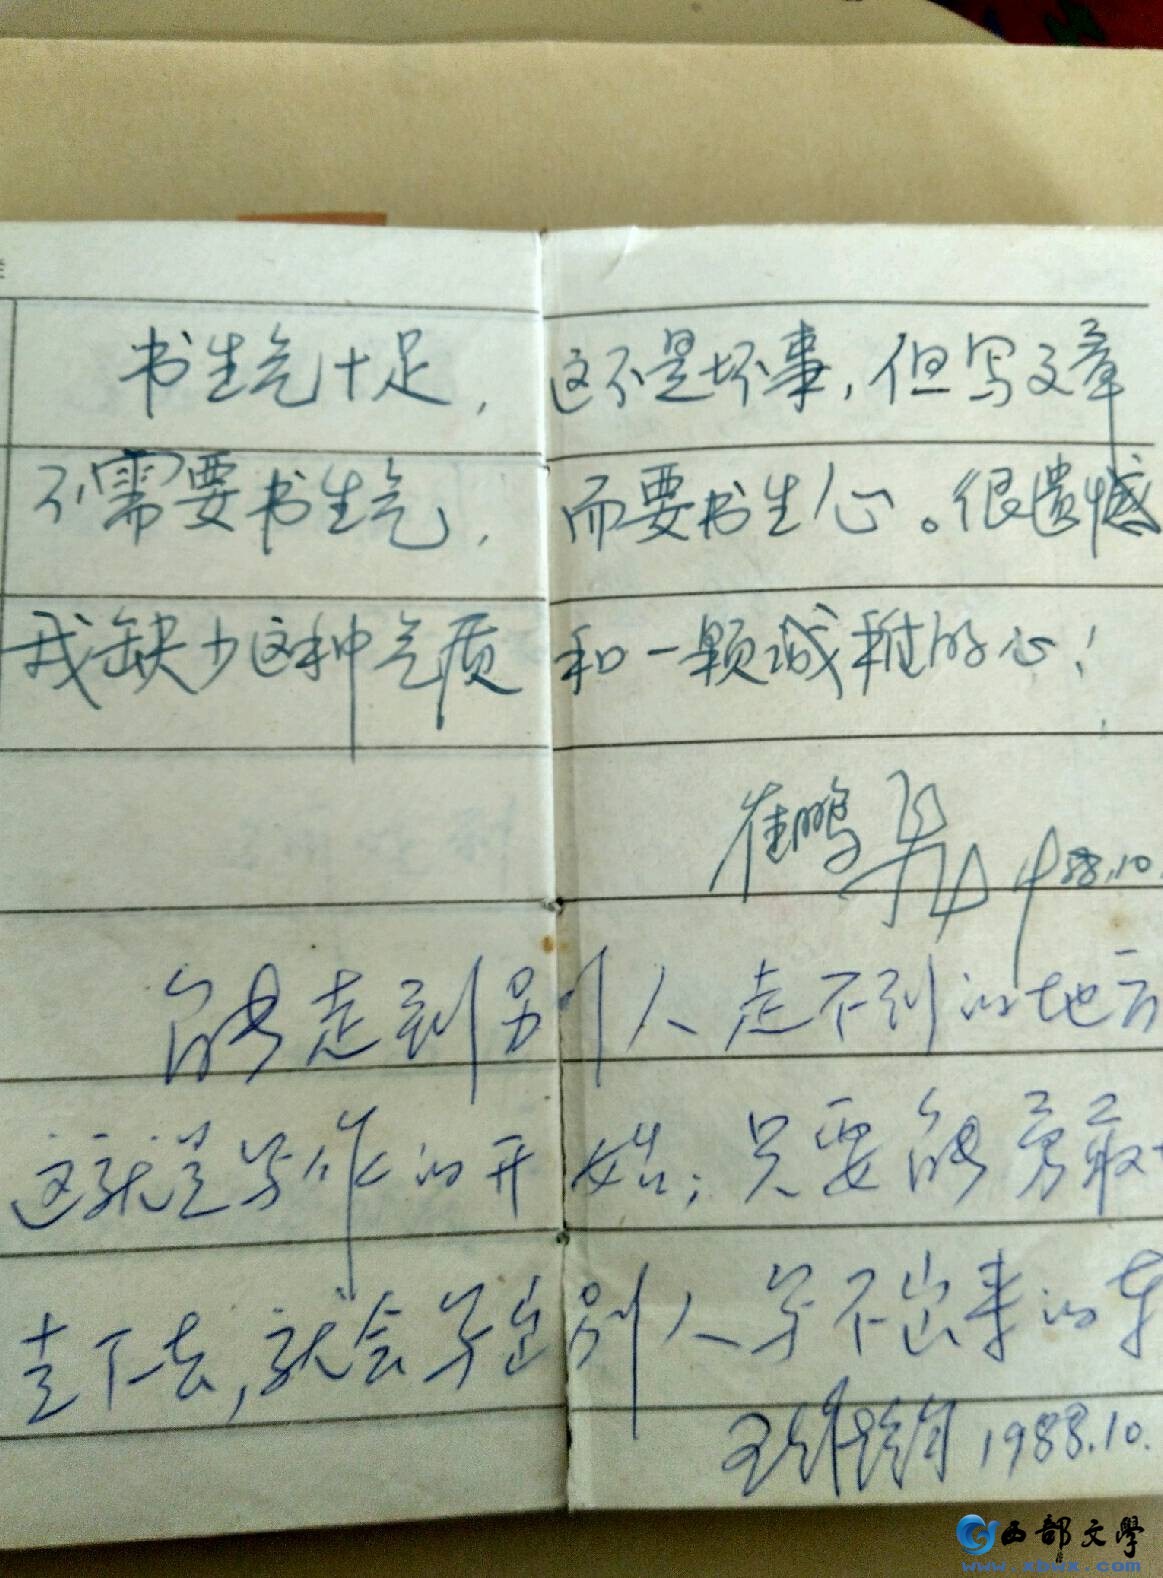 书生气十足，这不是坏事，但写文章
不需要书生气，而要书生心。很遗憾
我缺少这种气质和一颗诚稚的心！
崔鹏
88.10.
能走到别人走不到的地方
这就是写作的开始；只要能勇敢
走下去，就会写出别人写不出来的东
王 1988.10.
西部文学
www.xbwx.com